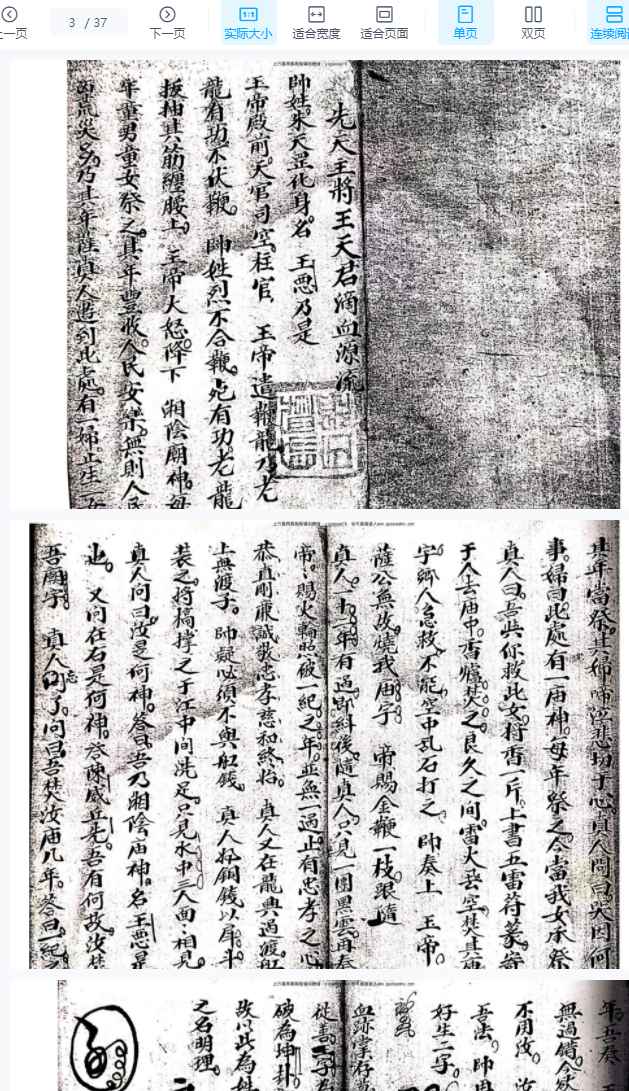 上一页
3 / 37
下一页
实际大小
适合宽度
适合页面
单页
双页
连续阅
先天主將王天君滴血源流
帥姓朱天罡化身名 王惡乃是
玉帝殿前天官司空柱官 玉帝遣鞭龍乃老
龍有功不伏鞭 帥姓烈不合鞭死有功老龍
拔抽其筋纏腰上 玉帝大怒降下 湘陰廟神每
年童男童女祭之其年豐收人民安樂無則人民
乃其年 真人遊到此處有一婦止生一女
其年當祭其婦啼泣悲切于心真人問曰哭因何
事婦曰此處有一庙神每年祭之今當我女承祭
真人曰吾與你救此女将香一片上書五雷符篆
于人去庙中香爐焚之良久之间雷火丟空焚其庙
字鄉人急救不能空中乱石打之 帥奏上 玉帝
薩公無故燒我庙宇 帝賜金鞭一枝跟隨
真人一十二年有過即糾後隨真人只見一團黑雲再奏
帝賜火輪照破一紀之年並無一過止有忠孝之心
恭直剛康誠敬忠孝慈和終始 真人又在龍興過渡舡
上無渡子 帥疑必須不與舡錢 真人将銅錢以
装之将稿撑之于江中间洗足只見水中三人面相見
真人问曰汝是何神答曰吾乃湘陰庙神名王惡是
也 又问在右是何神答陳威丘先吾有何故汝焚
吾廟宇 真人忘了问曰吾焚汝庙几年答曰一紀
年吾奏
無過錯人
不用汝
吾法 帥
好生二字
血跡掌存
從善二字
破為坤卦
故以此為
之名明理